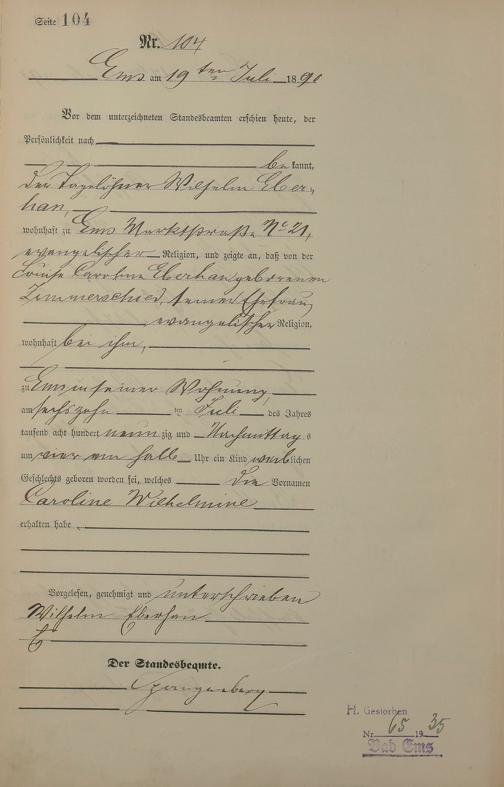 Seite 104
Nr. 104
Ems am 19 ten Juli 1890
Vor dem unterzeichneten Standesbeamten erschien heute, der
Persönlichkeit nach
be kannt,
der Tagelöhner Wilhelm Eber-
han,
wohnhaft zu Ems Marktstraße No 21,
evangelischer Religion, und zeigte an, daß von der
Louise Caroline Eberhan geborenen
Zimmerschied, seiner Ehefrau,
evangelischer Religion,
wohnhaft bei ihm,
zu Ems in seiner Wohnung,
am sechszehn ten Juli des Jahres
tausend acht hundert neun zig und Nachmittag s
um vier ein halb Uhr ein Kind weib lichen
Geschlechts geboren worden sei, welches die Vornamen
Caroline Wilhelmine
erhalten habe
Vorgelesen, genehmigt und unterschrieben
Wilhelm Eberhan
Der Standesbeamte.
Spangenberg
H. Gestorben
Nr. 65 1935
Bad Ems